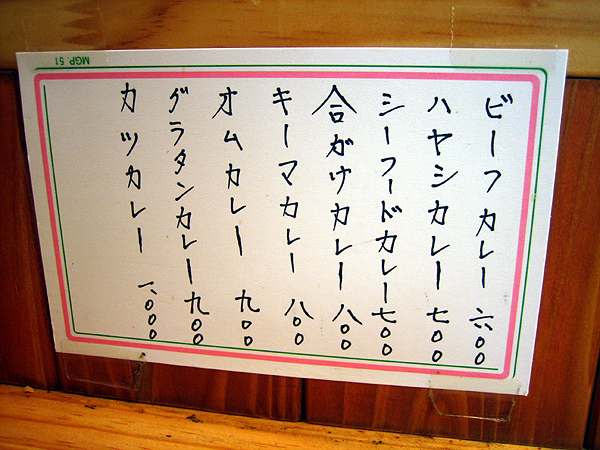 ビーフカレー 六〇〇
ハヤシカレー 七〇〇
シーフードカレー 七〇〇
合がけカレー 八〇〇
キーマカレー 八〇〇
オムカレー 九〇〇
グラタンカレー 九〇〇
カツカレー 一、〇〇〇
MGP. 51